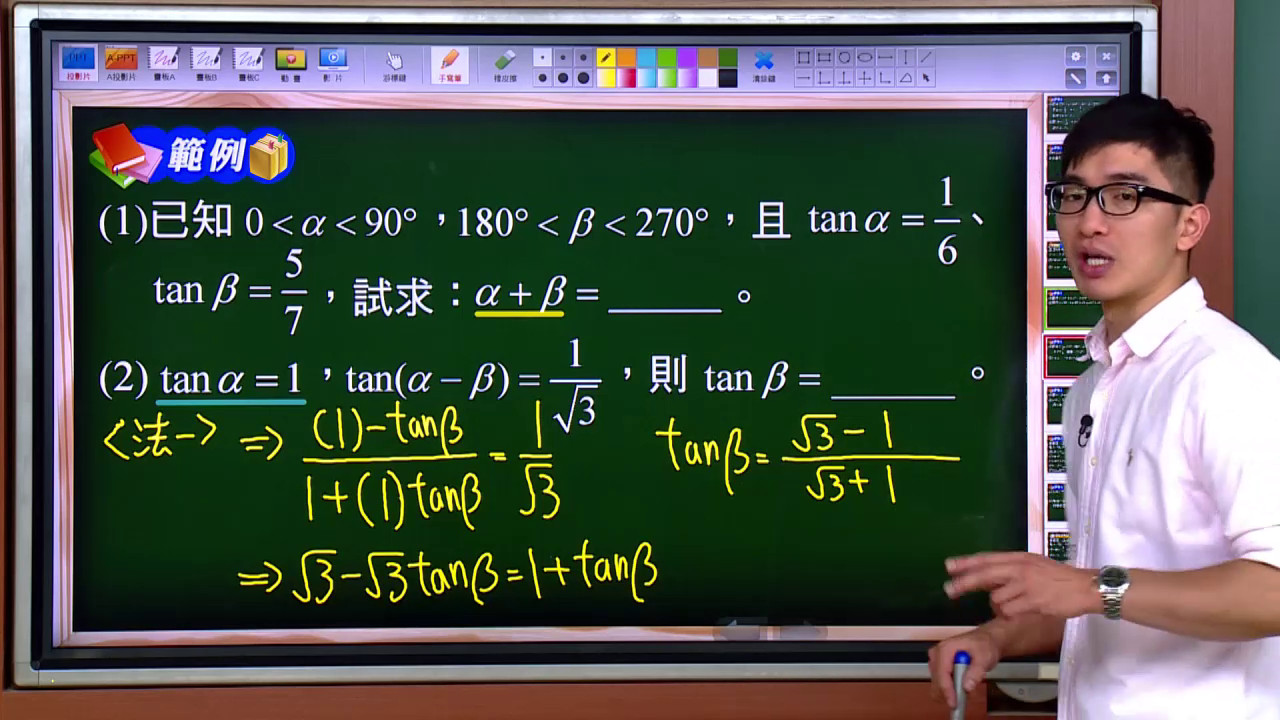 投影片 A投影片 畫板A 畫板B 畫板C 動畫 影片 游標鍵 手寫筆 橡皮擦 清除鍵
範例
(1)已知 0 < α < 90°，180° < β < 270°，且 tan α = 1/6、
tan β = 5/7，試求：α + β = ______。
(2) tan α = 1，tan(α − β) = 1/√3，則 tan β = ______。
<法一> ⇒ ((1)−tanβ)/(1+(1)tanβ) = 1/√3
tanβ = (√3−1)/(√3+1)
⇒ √3−√3tanβ = 1+tanβ